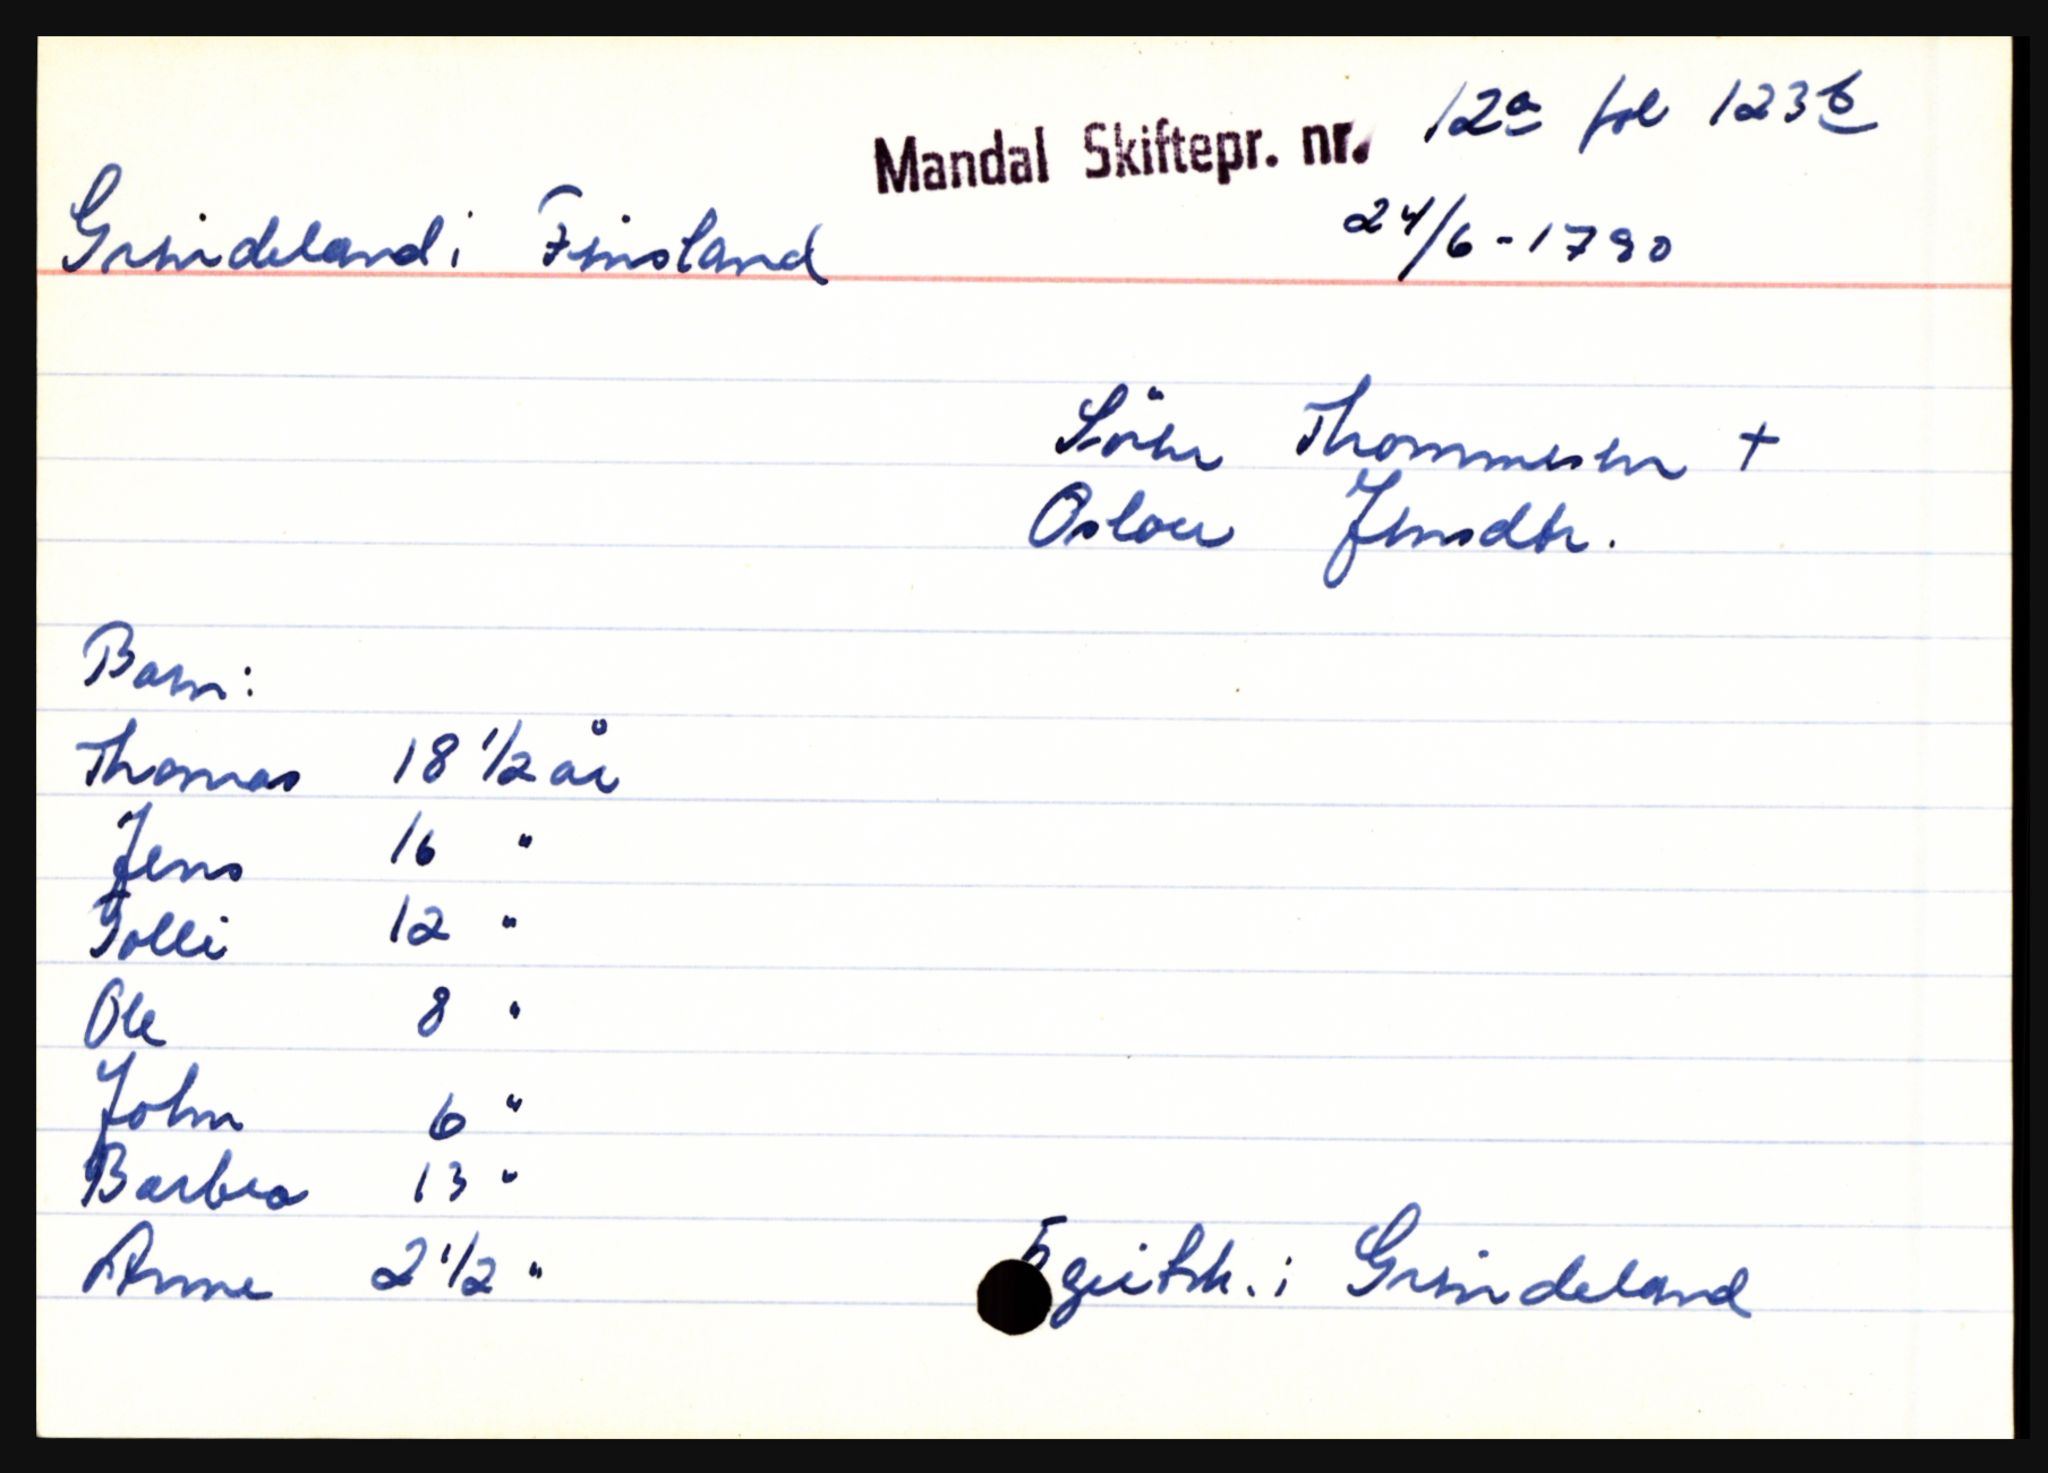 Mandal Skiftepr. nr. 12a fol 123b
Grindeland i Finsland 24/6-1790
Sören Thommesen +
Oslou Jensdtr.
Barn:
Thomas 18 1/2 år
Jens 16 "
Tolli 12 "
Ole 8 "
John 6 "
Barbra 13 "
Anne 2 1/2 "
5 i Grindeland